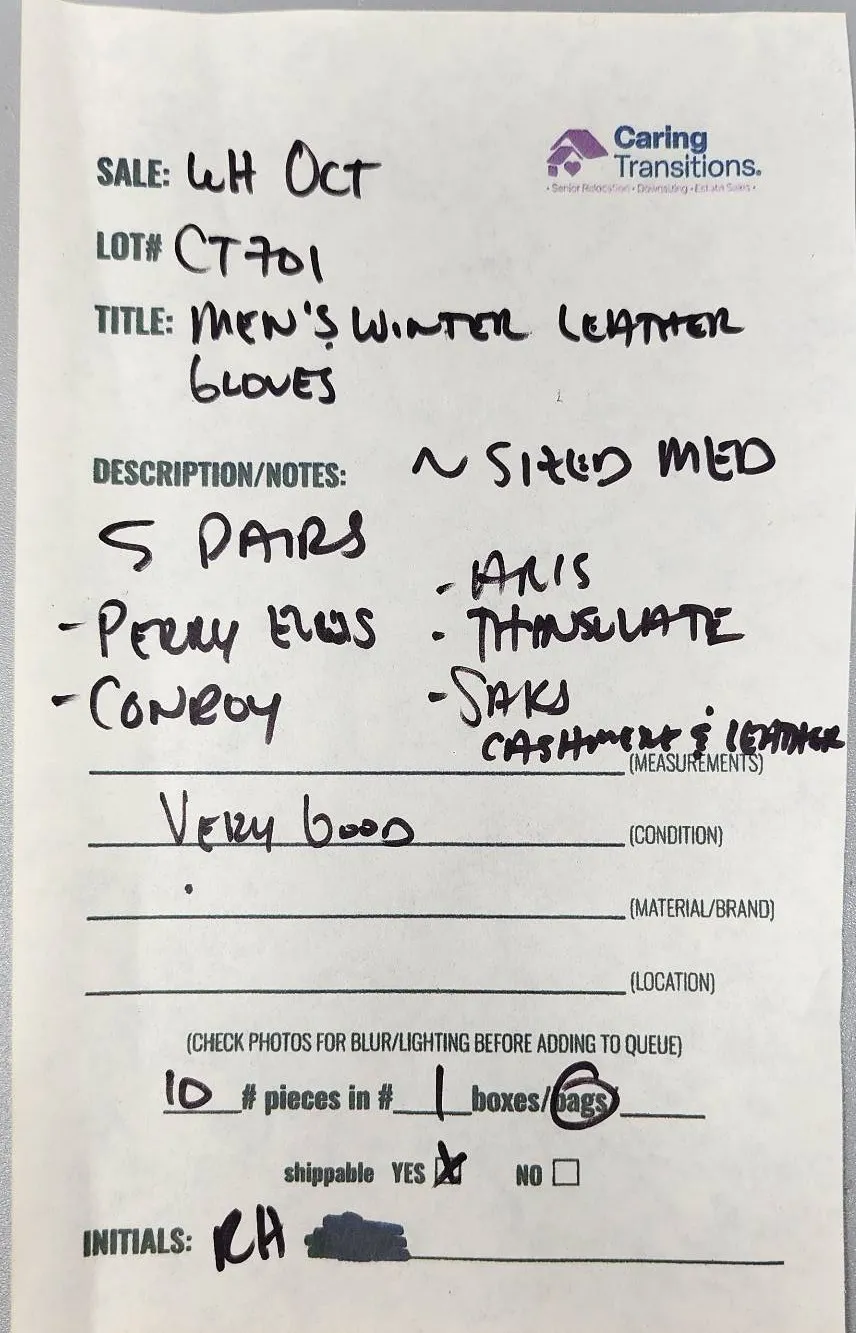 Caring
Transitions.
• Senior Relocation • Downsizing • Estate Sales •
SALE: WH OCT
LOT# CT701
TITLE: MEN'S WINTER LEATHER
GLOVES
DESCRIPTION/NOTES: ~ SIZED MED
5 PAIRS
- ARIS
- PERRY ELLIS - THINSULATE
- CONROY - SAKS
CASHMERE & LEATHER
(MEASUREMENTS)
VERY GOOD (CONDITION)
(MATERIAL/BRAND)
(LOCATION)
(CHECK PHOTOS FOR BLUR/LIGHTING BEFORE ADDING TO QUEUE)
10 # pieces in # 1 boxes/bags/
shippable YES ☒ NO ☐
INITIALS: RH